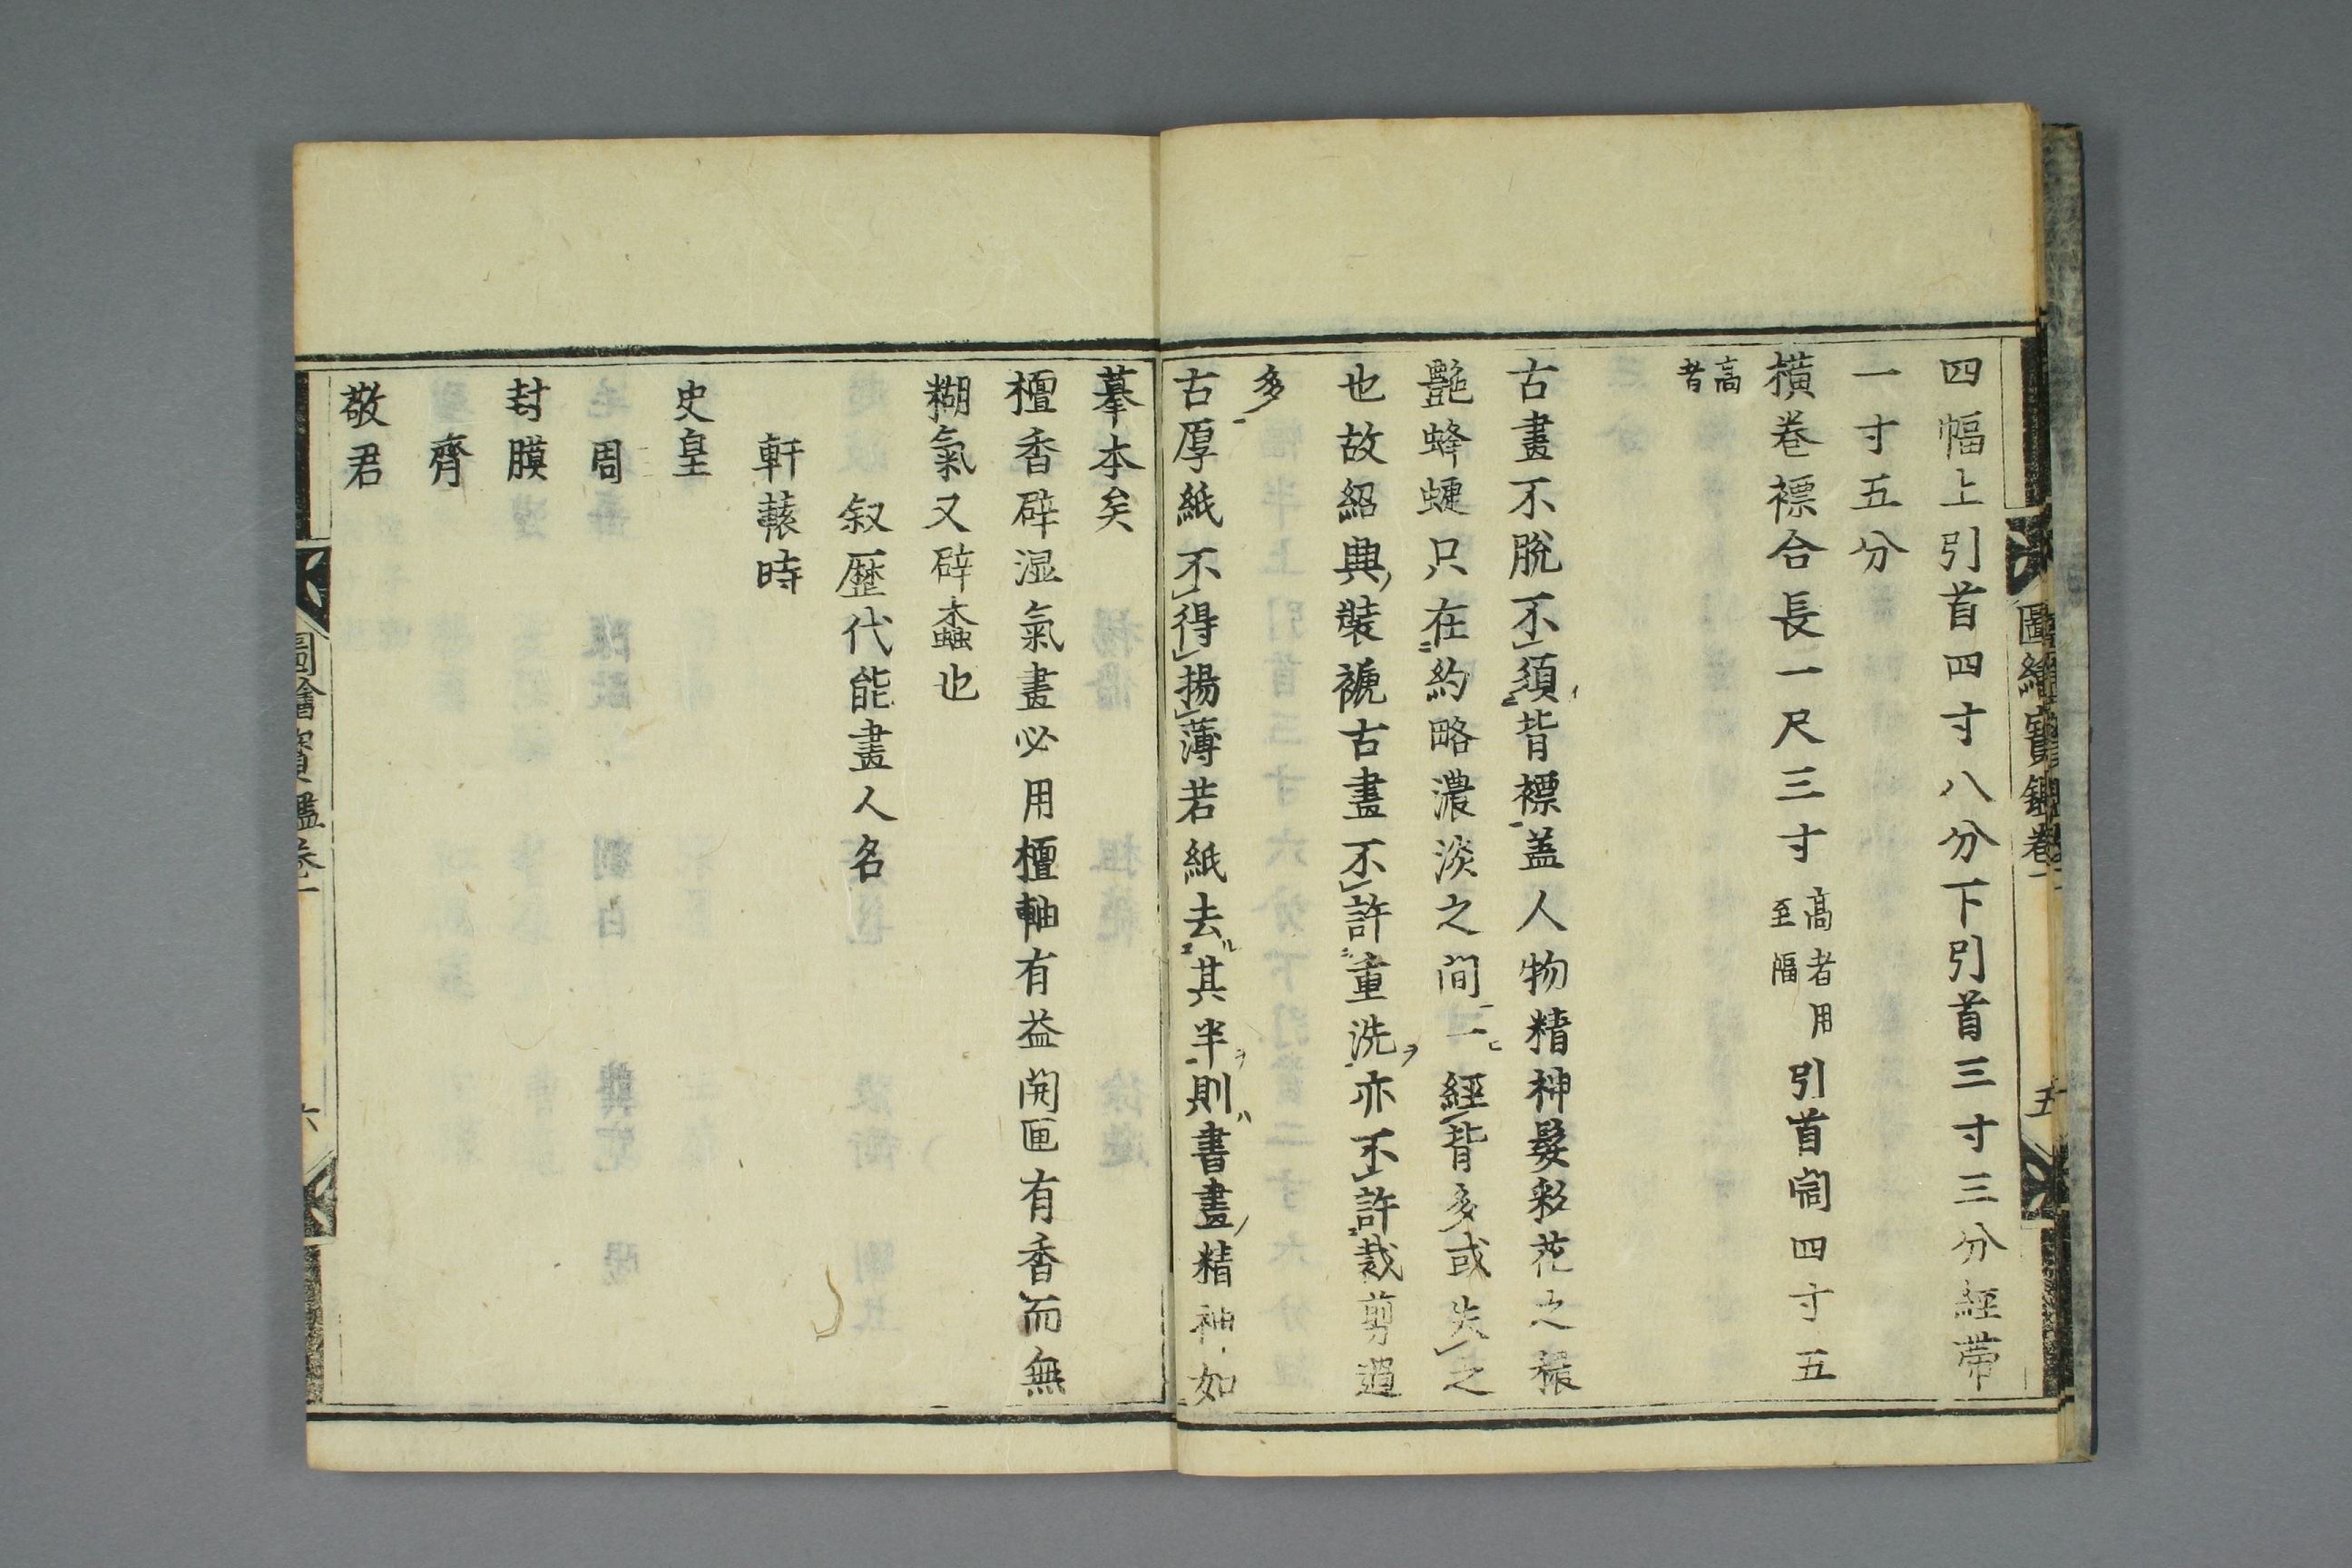 四幅上引首四寸八分下引首三寸三分經帶
一寸五分
橫卷褾合長一尺三寸高者用至幅引首闊四寸五
高者
古畫不脫不須背褾盖人物精神髮彩花之穠
艷蜂蝶只在約略濃淡之間一經背多或失之
也故紹典裝褫古畫不許重洗亦不許裁剪過
多
古厚紙不得揭薄若紙去其半則書畫精神如
摹本矣
檀香辟湿氣畫必用檀軸有益開匣有香而無
糊氣又辟蠹也
叙歷代能畫人名
軒轅時
史皇
周
封膜
齊
敬君
圖繪寶鑑卷一
五
圖繪寶鑑卷一
六